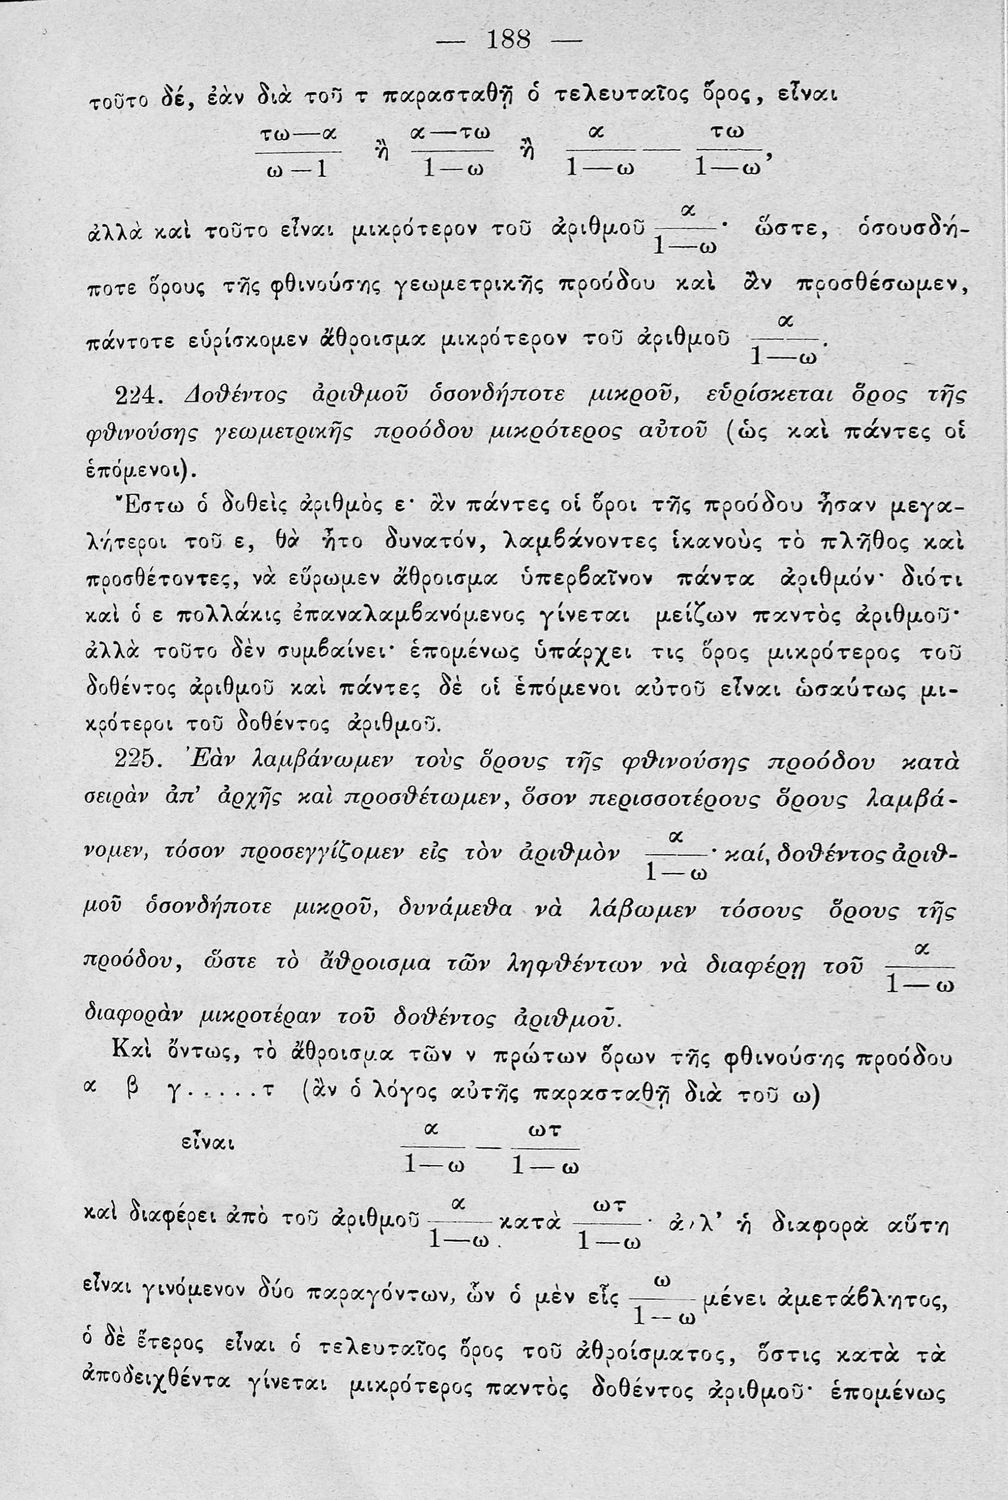 — 188 —
τοῦτο δέ, ἐὰν διὰ τοῦ τ παρασταθῇ ὁ τελευταῖος ὅρος, εἶναι
τω—α / ω—1 ἢ α—τω / 1—ω ἢ α / 1—ω — τω / 1—ω,
ἀλλὰ καὶ τοῦτο εἶναι μικρότερον τοῦ ἀριθμοῦ α / 1—ω· ὥστε, ὁσουσδή-
ποτε ὅρους τῆς φθινούσης γεωμετρικῆς προόδου καὶ ἂν προσθέσωμεν,
πάντοτε εὑρίσκομεν ἄθροισμα μικρότερον τοῦ ἀριθμοῦ α / 1—ω.
224. Δοθέντος ἀριθμοῦ ὁσονδήποτε μικροῦ, εὑρίσκεται ὅρος τῆς
φθινούσης γεωμετρικῆς προόδου μικρότερος αὐτοῦ (ὡς καὶ πάντες οἱ
ἑπόμενοι).
Ἔστω ὁ δοθεὶς ἀριθμὸς ε· ἂν πάντες οἱ ὅροι τῆς προόδου ἦσαν μεγα-
λήτεροι τοῦ ε, θὰ ἦτο δυνατόν, λαμβάνοντες ἱκανοὺς τὸ πλῆθος καὶ
προσθέτοντες, νὰ εὕρωμεν ἄθροισμα ὑπερβαῖνον πάντα ἀριθμόν· διότι
καὶ ὁ ε πολλάκις ἐπαναλαμβανόμενος γίνεται μείζων παντὸς ἀριθμοῦ·
ἀλλὰ τοῦτο δὲν συμβαίνει· ἑπομένως ὑπάρχει τις ὅρος μικρότερος τοῦ
δοθέντος ἀριθμοῦ καὶ πάντες δὲ οἱ ἑπόμενοι αὐτοῦ εἶναι ὡσαύτως μι-
κρότεροι τοῦ δοθέντος ἀριθμοῦ.
225. Ἐὰν λαμβάνωμεν τοὺς ὅρους τῆς φθινούσης προόδου κατὰ
σειρὰν ἀπ' ἀρχῆς καὶ προσθέτωμεν, ὅσον περισσοτέρους ὅρους λαμβά-
νομεν, τόσον προσεγγίζομεν εἰς τὸν ἀριθμὸν α / 1—ω· καί, δοθέντος ἀριθ-
μοῦ ὁσονδήποτε μικροῦ, δυνάμεθα νὰ λάβωμεν τόσους ὅρους τῆς
προόδου, ὥστε τὸ ἄθροισμα τῶν ληφθέντων νὰ διαφέρῃ τοῦ α / 1—ω
διαφορὰν μικροτέραν τοῦ δοθέντος ἀριθμοῦ.
Καὶ ὄντως, τὸ ἄθροισμα τῶν ν πρώτων ὅρων τῆς φθινούσης προόδου
α β γ.....τ (ἂν ὁ λόγος αὐτῆς παρασταθῇ διὰ τοῦ ω)
εἶναι α / 1—ω — ωτ / 1—ω
καὶ διαφέρει ἀπὸ τοῦ ἀριθμοῦ α / 1—ω κατὰ ωτ / 1—ω· ἀλλ' ἡ διαφορὰ αὕτη
εἶναι γινόμενον δύο παραγόντων, ὧν ὁ μὲν εἷς ω / 1—ω μένει ἀμετάβλητος,
ὁ δὲ ἕτερος εἶναι ὁ τελευταῖος ὅρος τοῦ ἀθροίσματος, ὅστις κατὰ τὰ
ἀποδειχθέντα γίνεται μικρότερος παντὸς δοθέντος ἀριθμοῦ· ἑπομένως